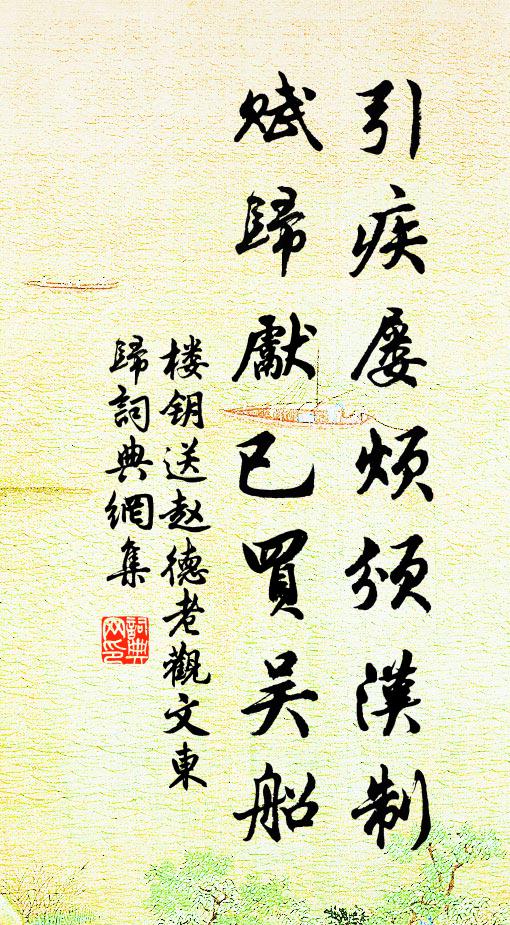 引疾屡烦颁漢制
赋歸獻已買吴船
楼钥送赵德老觀文東
歸詞典網集
詞典网印